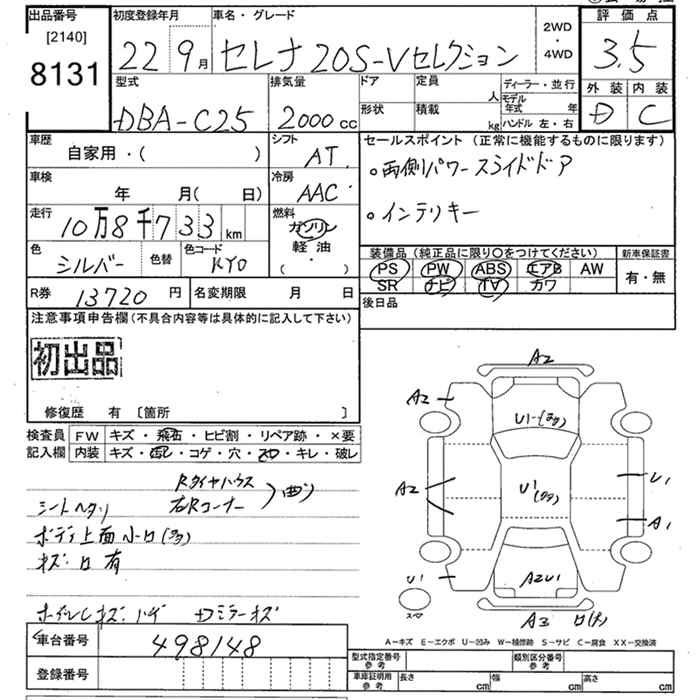 出品番号
[2140]
8131
初度登録年月
22 9月
車名・グレード
セレナ 20S-Vセレクション
2WD
・
4WD
評価点
3.5
外装 内装
D C
型式
DBA-C25
排気量
2000cc
ドア
形状
定員
人
積載
kg
ディーラー・並行
モデル年式 年
ハンドル 左・右
車歴
自家用・( )
シフト
AT
車検
年 月( 日)
冷房
AAC
走行
10万8千733km
燃料
ガソリン
軽油
( ・ )
色
シルバー
色替
色コード
KY0
R券
13720円
名変期限 月 日
セールスポイント(正常に機能するものに限ります)
。両側パワースライドドア
。インテリキー
装備品(純正品に限り〇をつけてください)
PS PW ABS エアB AW
SR ナビ TV カワ
新車保証書
有・無
後日品
注意事項申告欄(不具合内容等は具体的に記入して下さい)
初出品
修復歴 有 [箇所 ]
検査員
記入欄
FW キズ・飛石・ヒビ割・リペア跡・×要
内装 キズ・汚レ・コゲ・穴・スレ・キレ・破レ
Rタイヤハウス
右Rコーナー
シートヘタリ
ボディ上面小
有
Dミラーキズ
車台番号
498148
登録番号
A2
A2
U1
A2
U1
U1
A1
U1
A2U1
スペア
A3
A-キズ E-エクボ U-凹み W-補修跡 S-サビ C-腐食 XX-交換済
型式指定番号
参考
類別区分番号
参考
車庫証明用
参考
長さ cm
幅 cm
高さ cm